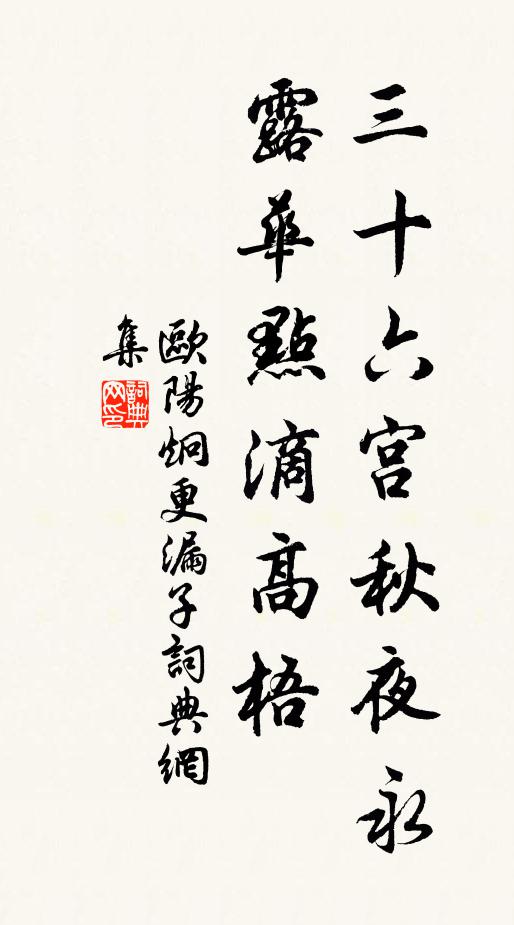 三十六宮秋夜永
露華點滴高梧
歐陽炯更漏子詞典網
集
詞典
网印